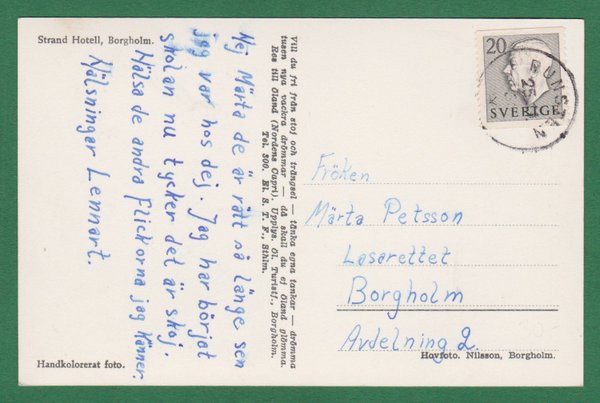 Strand Hotell, Borgholm.
Hej Märta de är rätt så länge sen
jag var hos dej. Jag har börjat
skolan nu tycker det är skoj.
Hälsa de andra flickorna jag känner.
Hälsningar Lennart.
Handkolorerat foto.
Vill du fri från stoj och trängsel — tänka egna tankar — drömma
tusen nya vackra drömmar — då skall du ej Öland glömma.
Res till Öland (Nordens Capri). Upplys. Öl. Turistf., Borgholm.
Tel. 300. El. S. T. F., Sthlm.
20
SVERIGE
Fröken
Märta Petsson
Lasarettet
Borgholm
Avdelning 2.
Hovfoto. Nilsson, Borgholm.